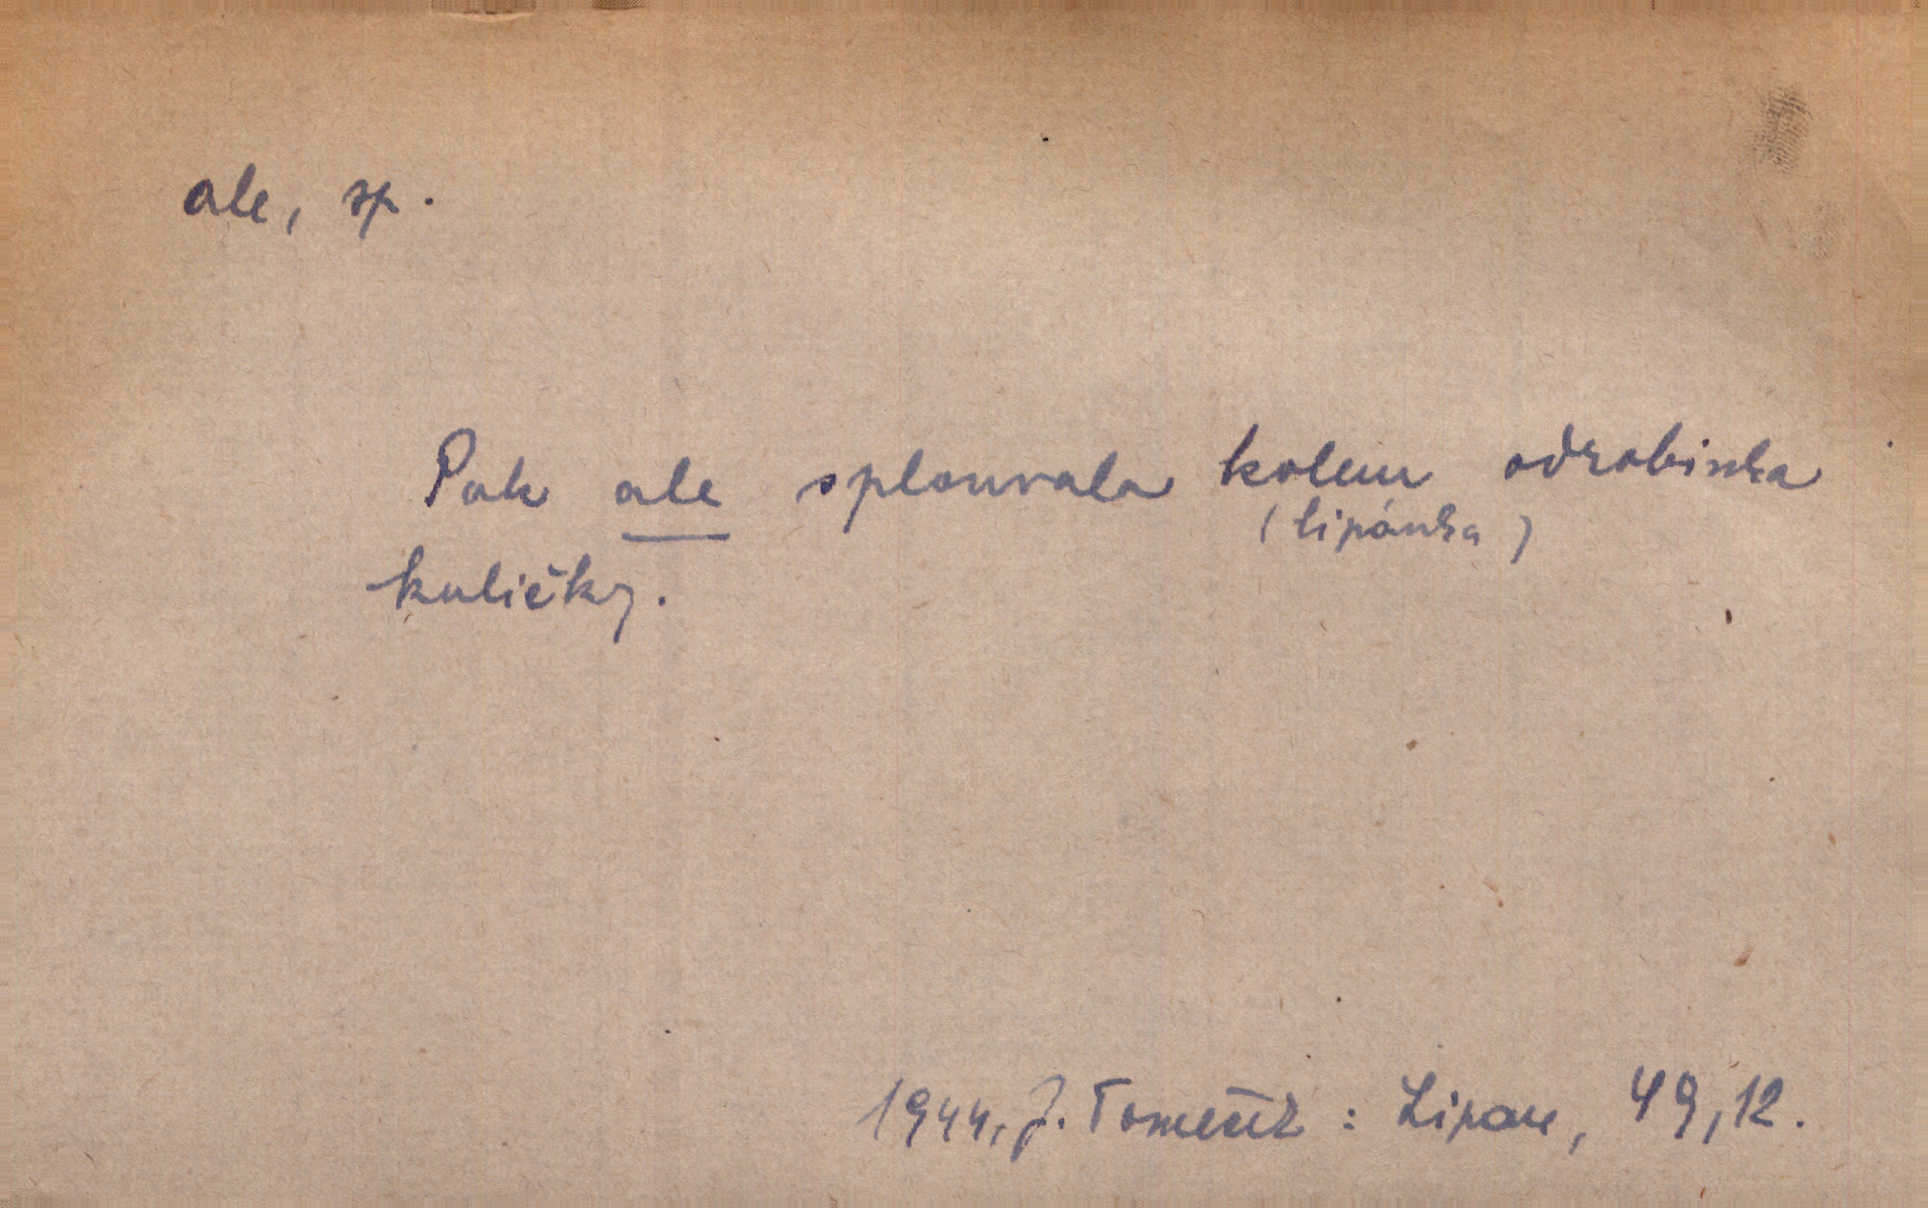 ale, sp.
Pak ale splouvala kolem odrobinka
(lipánka)
kuličky.
1944, J. Tomeček: Lipan, 49,12.